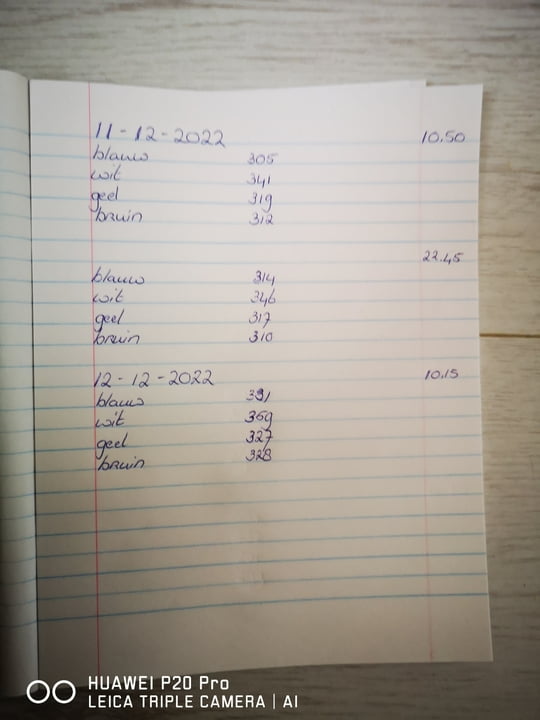 11-12-2022 10.50
blauw 305
wit 341
geel 319
bruin 312
22.45
blauw 314
wit 346
geel 317
bruin 310
12-12-2022 10.15
blauw 331
wit 369
geel 327
bruin 328
HUAWEI P20 Pro
LEICA TRIPLE CAMERA | AI